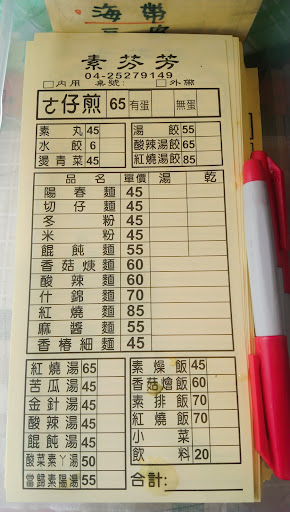 海帶
素芬芳
04-25279149
□內用 桌號: □外帶
ㄜ仔煎 65 有蛋 無蛋
素丸 45 湯餃 55
水餃 6 酸辣湯餃 65
燙青菜 45 紅燒湯餃 85
品名 單價 湯 乾
陽春麵 45
切仔麵 45
冬粉 45
米粉 45
餛飩麵 55
香菇焿麵 60
酸辣麵 60
什錦麵 70
紅燒麵 85
麻醬麵 55
香椿細麵 45
紅燒湯 65 素燥飯 45
苦瓜湯 45 香菇燴飯 60
金針湯 45 素排飯 70
酸辣湯 45 紅燒飯 70
餛飩湯 45 小菜
酸菜素ㄚ湯 50 飲料 20
當歸素陽湯 55 合計: